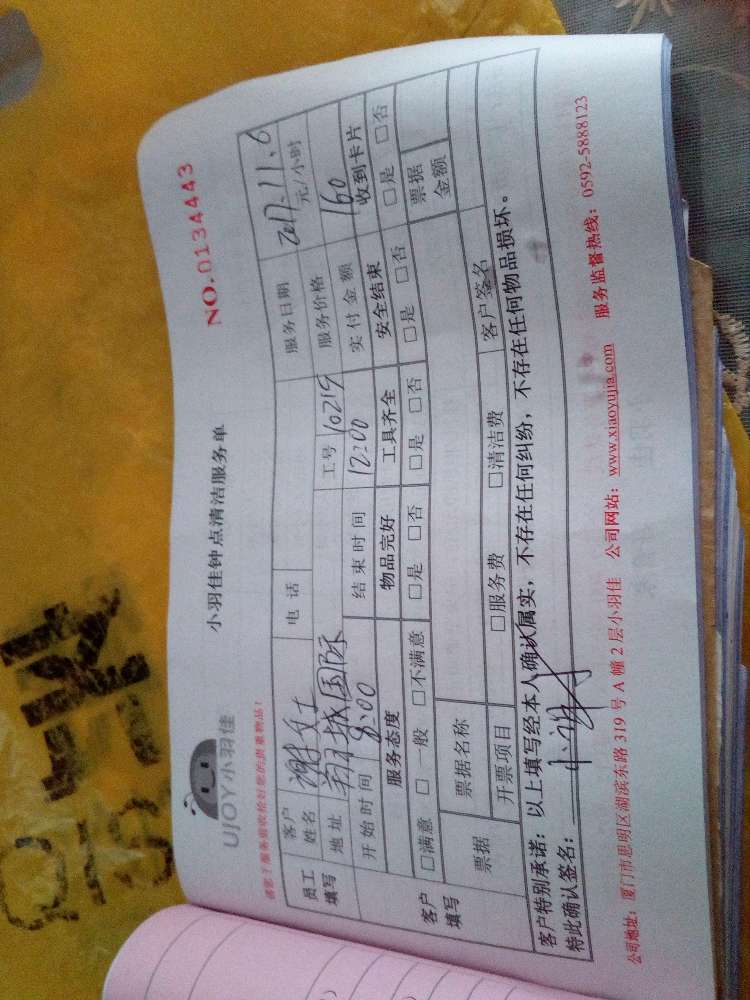 UJOY 小羽佳
小羽佳钟点清洁服务单
NO.0134443
员工填写 客户姓名 谢女士 电话 服务日期 2017.11.6
地址 翔城国际 工号 10219 服务价格 元/小时
开始时间 8:00 结束时间 12:00 实付金额 160
客户填写 服务态度 物品完好 工具齐全 安全结束 收到卡片
□满意 □一般 □不满意 □是 □否 □是 □否 □是 □否 □是 □否
票据 票据名称 票据金额
开票项目 □服务费 □清洁费 客户签名
客户特别承诺：以上填写经本人确认属实，不存在任何纠纷，不存在任何物品损坏。
特此确认签名：
公司地址：厦门市思明区湖滨东路 319 号 A 幢 2 层小羽佳 公司网站：www.xiaoyujia.com 服务监督热线：0592-5888123